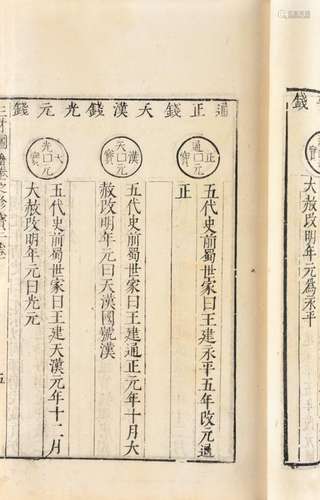 錢
寶
大赦改明年元為永平
通正錢天漢錢光元錢
通正元寶
五代史前蜀世家曰王建永平五年改元通
正
天漢元寶
五代史前蜀世家曰王建通正元年十月大
赦改明年元曰天漢國號漢
光大元寶
五代史前蜀世家曰王建天漢元年十二月
大赦改明年元曰光元
三才圖會 珍寶一卷
五